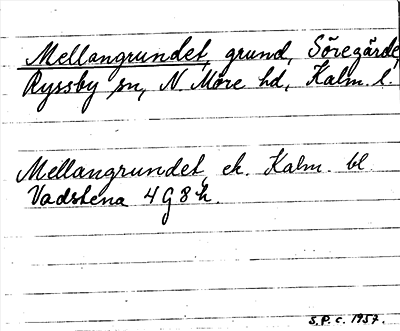 Mellangrundet, grund, Söregärde,
Ryssby sn, N. Möre hd, Kalm. l.
Mellangrundet, ek. Kalm. bl.
Vadstena 4 G 8 h.
S.P.C. 1957.